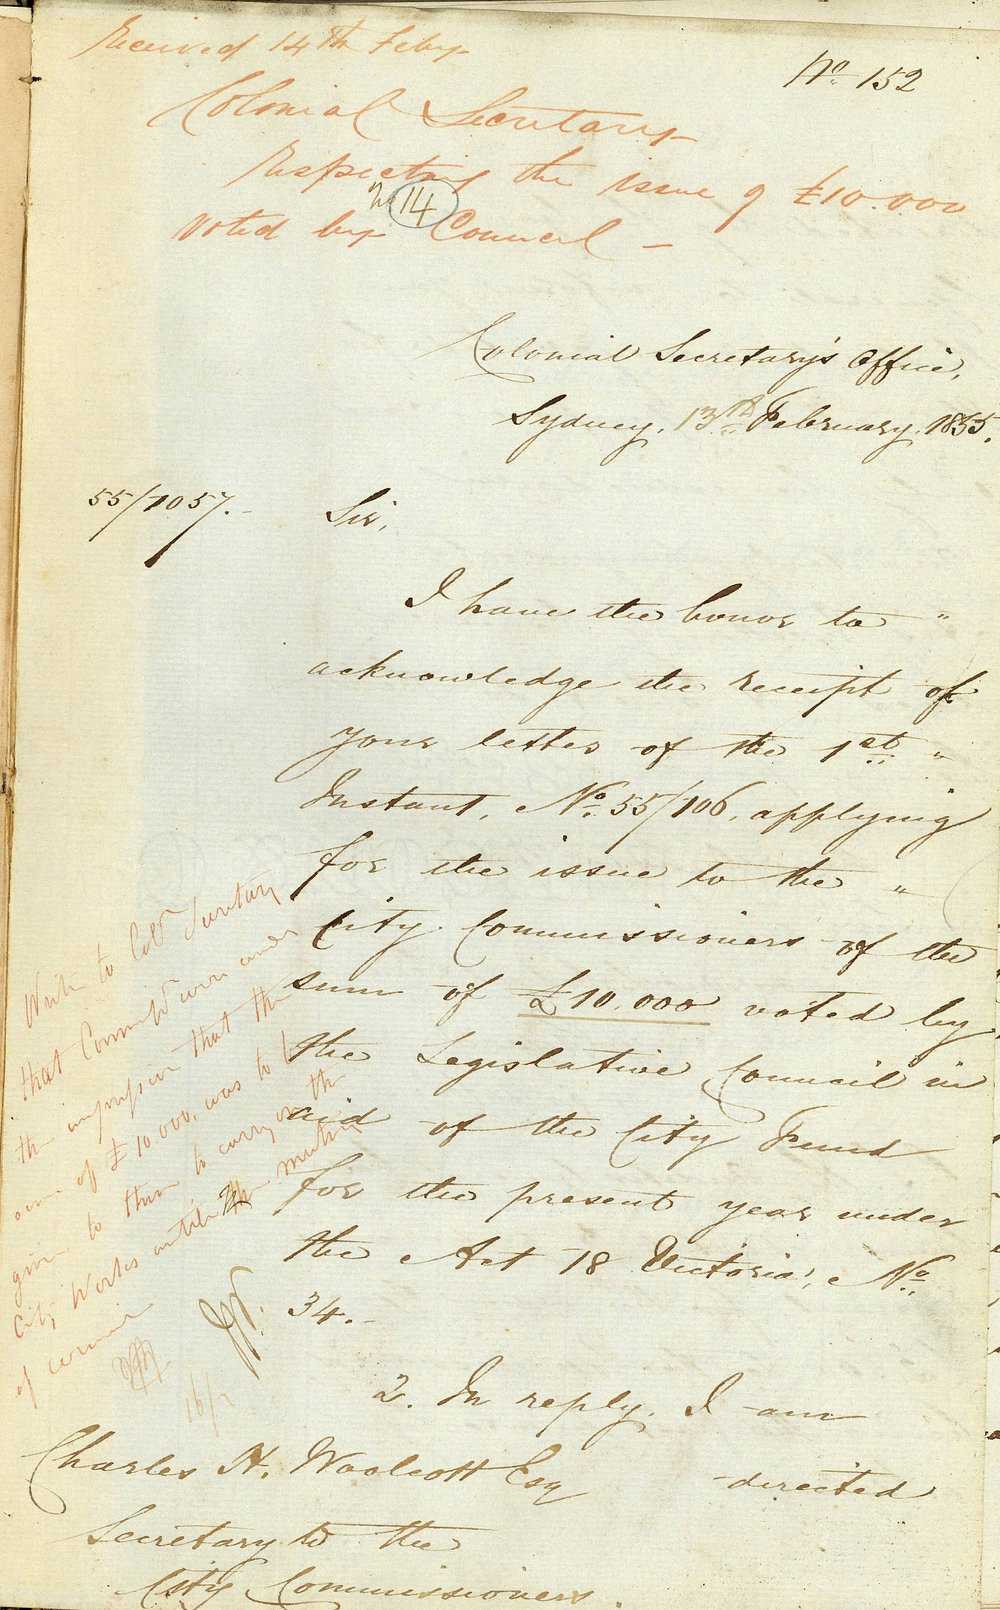 Received 14th Feby
No. 152
Colonial Secretary
Respecting the issue of £10.000
No 14
voted by Council —
Colonial Secretary's Office,
Sydney, 13th February, 1855.
55/1057.
Sir,
I have the honor to "
acknowledge the receipt of
your letter of the 1st "
Instant, No. 55/106, applying
for the issue to the "
City Commissioners of the
sum of £10.000 voted by
the Legislative Council in
aid of the City Fund
for the present year under
the Act 18 Victoria, No.
34.
Write to Coll Secretary
that Commrs were under
the impression that the
sum of £10.000. was to be
given to them to carry on the
City Works until the
of
16/2
2. In reply, I am
directed
Charles H. Woolcott Esq
Secretary to the
City Commissioners.